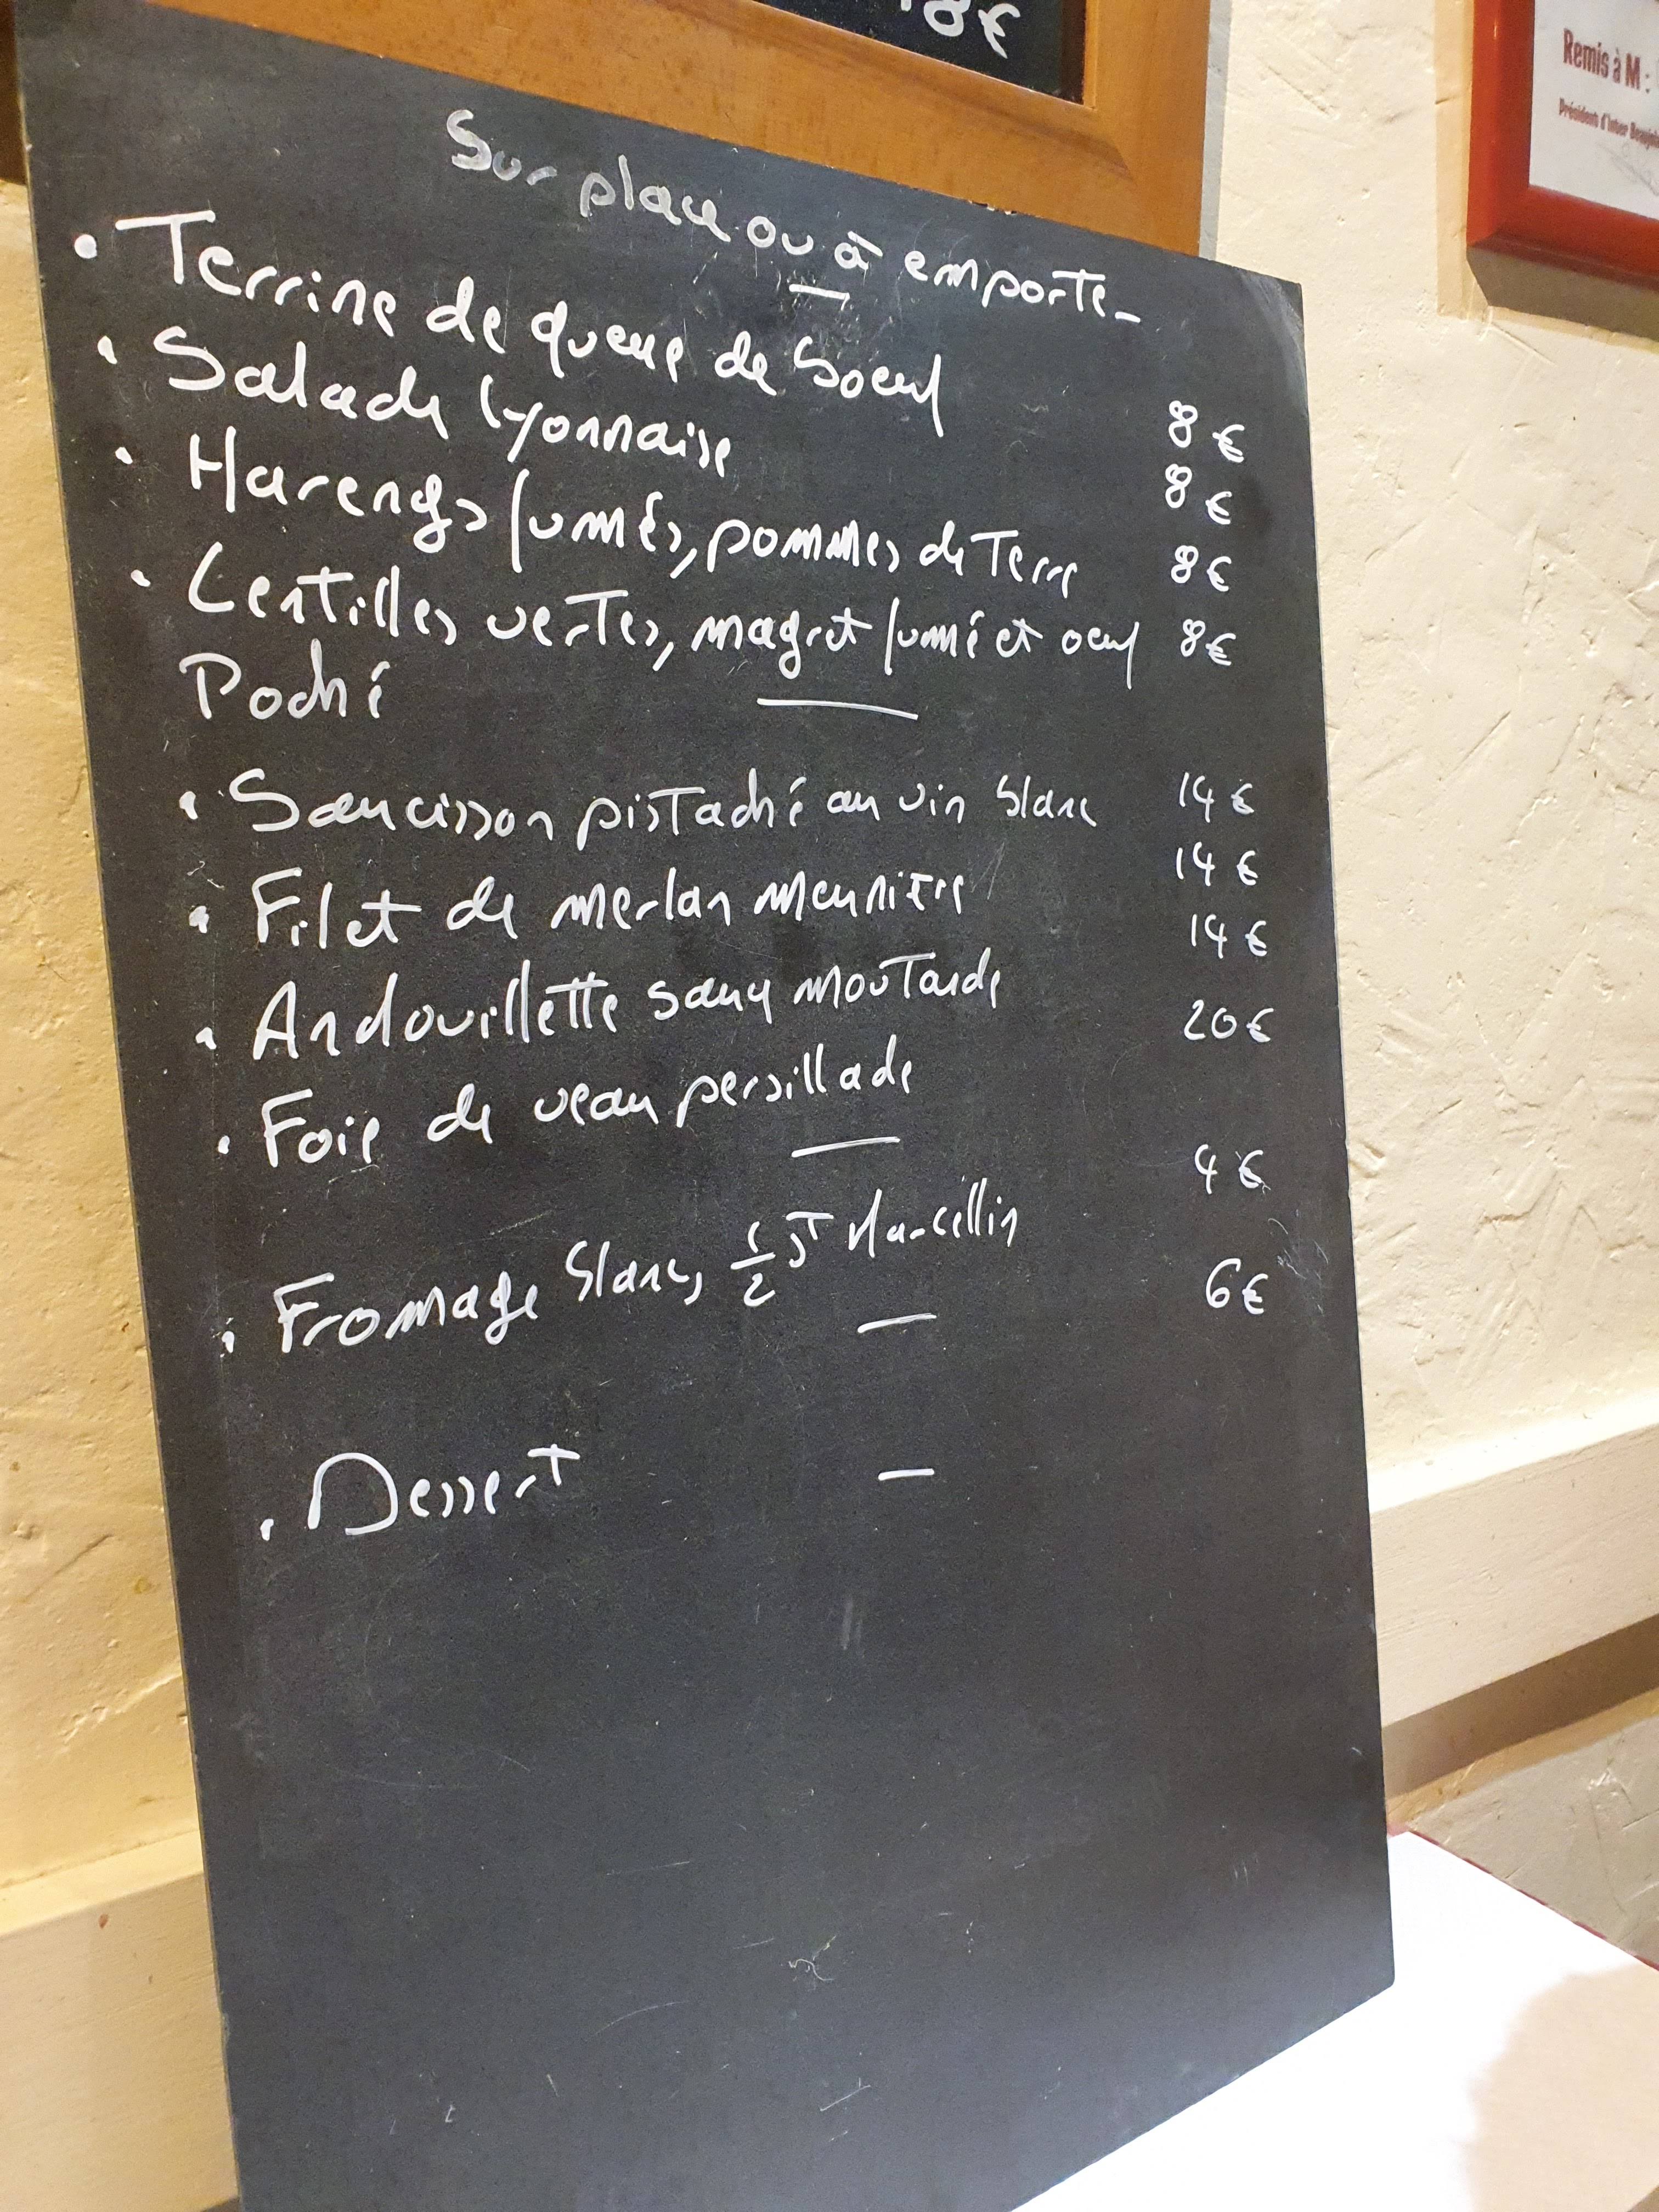 18€
Remis à M :
Présidents d'Inter Beaujolais
Sur place ou à emporte-
• Terrine de queue de boeuf 8 €
• Salade lyonnaise 8 €
• Harengs fumés, pommes de Terre 8 €
• Lentilles vertes, magret fumé et oeuf 8 €
Poché
• Saucisson pistaché au vin blanc 14 €
• Filet de merlan meunière 14 €
• Andouillette sauce moutarde 14 €
• Foie de veau persillade 20 €
• Fromage blanc, 1/2 St Marcellin 4 €
• Dessert 6 €